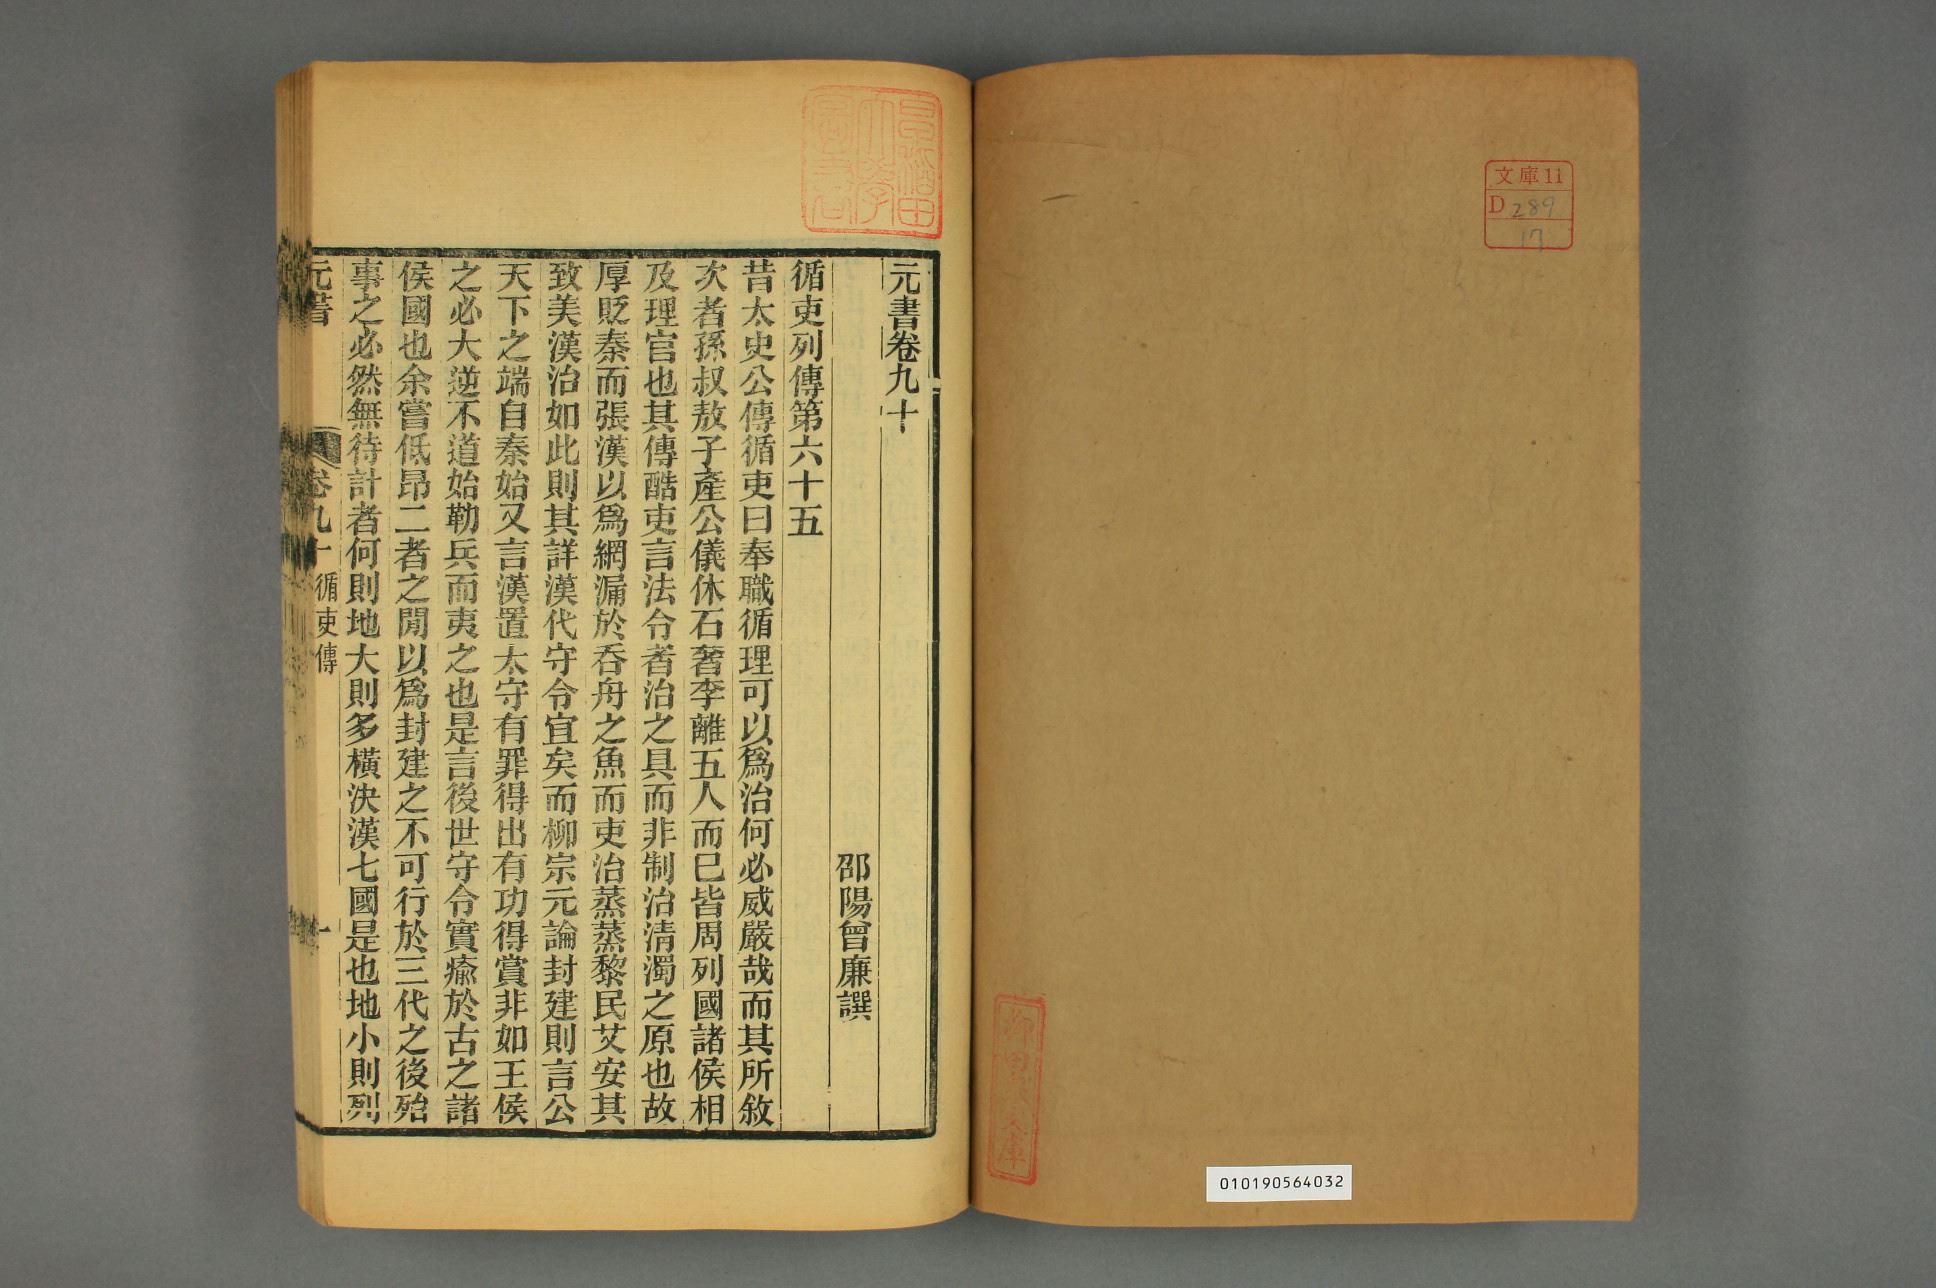 文庫11
D 289
17
柳田文庫
010190564032
早稲田
大學
圖書
元書卷九十
邵陽曾廉譔
循吏列傳第六十五
昔太史公傳循吏曰奉職循理可以爲治何必威嚴哉而其所敘
次者孫叔敖子產公儀休石奢李離五人而已皆周列國諸侯相
及理官也其傳酷吏言法令者治之具而非制治清濁之原也故
厚貶秦而張漢以爲網漏於吞舟之魚而吏治蒸蒸黎民艾安其
致美漢治如此則其詳漢代守令宜矣而柳宗元論封建則言公
天下之端自秦始又言漢置太守有罪得出有功得賞非如王侯
之必大逆不道始勒兵而夷之也是言後世守令實瘉於古之諸
侯國也余嘗低昂二者之閒以爲封建之不可行於三代之後殆
事之必然無待計者何則地大則多橫決漢七國是也地小則列
元書
卷九十
循吏傳
一